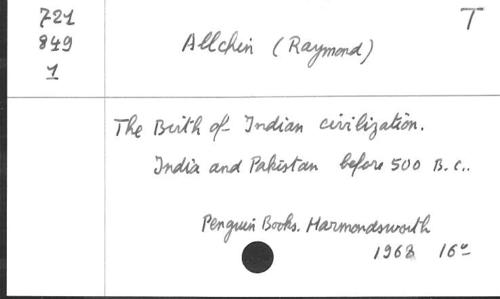 721
849
1
Allchin (Raymond)
T
The Birth of Indian civilization.
India and Pakistan before 500 B.C..
Penguin Books. Harmondsworth
1968 16°